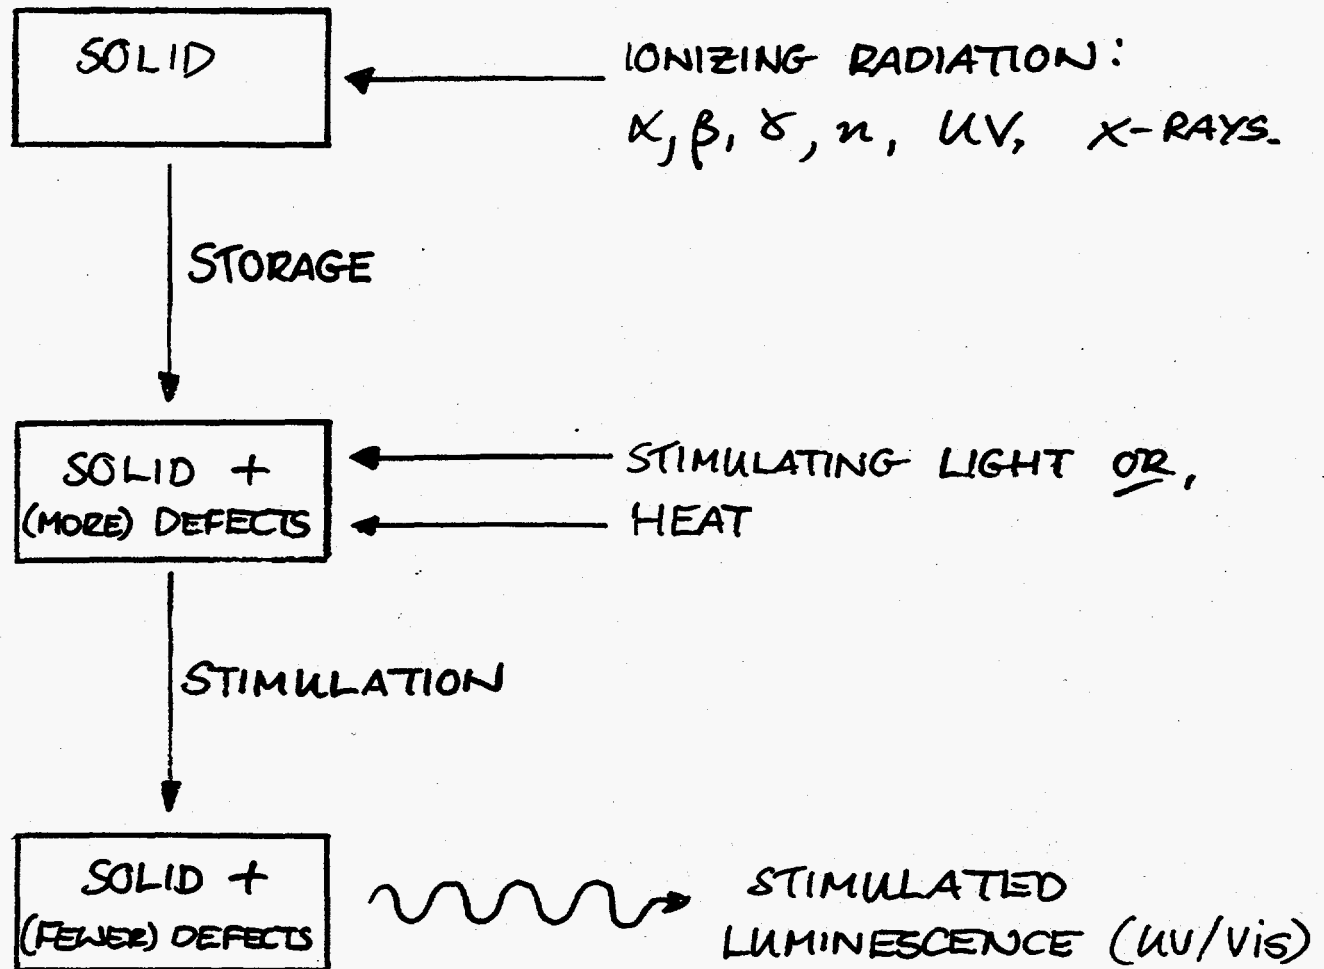 SOLID
IONIZING RADIATION:
α, β, γ, n, UV, X-RAYS.
STORAGE
SOLID +
(MORE) DEFECTS
STIMULATING LIGHT OR,
HEAT
STIMULATION
SOLID +
(FEWER) DEFECTS
STIMULATED
LUMINESCENCE (UV/Vis)